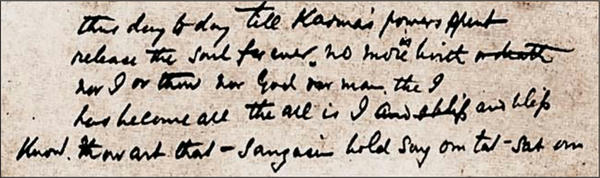 thus day to day till Karma's powers spent
release the soul for ever. no more is birth or death
nor I or thou nor God nor man. the I
has become all the all is I and bliss and bliss
Know. thou art that – Sanyasin bold say om tat-sat om